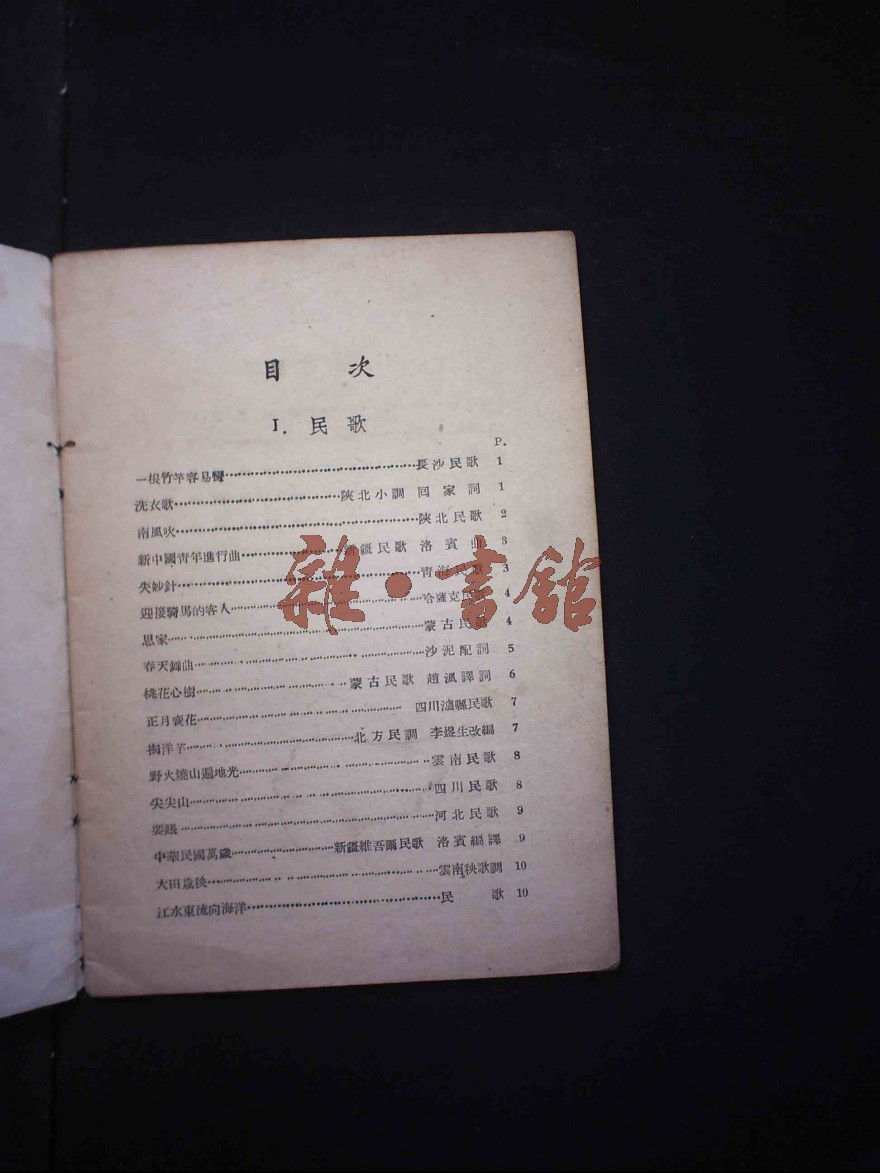 目 次
I. 民歌
P.
一根竹竿容易彎 長沙民歌 1
洗衣歌 陝北小調 同家詞 1
南風吹 陝北民歌 2
新中國青年進行曲 新疆民歌 洛賓曲 3
失妙針 青海民歌 3
迎接騎馬的客人 哈薩克民歌 4
思家 蒙古民歌 4
春天舞曲 沙泥配詞 5
桃花心樹 蒙古民歌 趙渢譯詞 6
正月賣花 四川瀘縣民歌 7
掏洋芋 北方民調 李煜生改編 7
野火燒山遍地光 雲南民歌 8
尖尖山 四川民歌 8
要賬 河北民歌 9
中華民國萬歲 新疆維吾爾民歌 洛賓編譯 9
大田栽秧 雲南秧歌調 10
江水東流向海洋 民歌 10
雜·書館